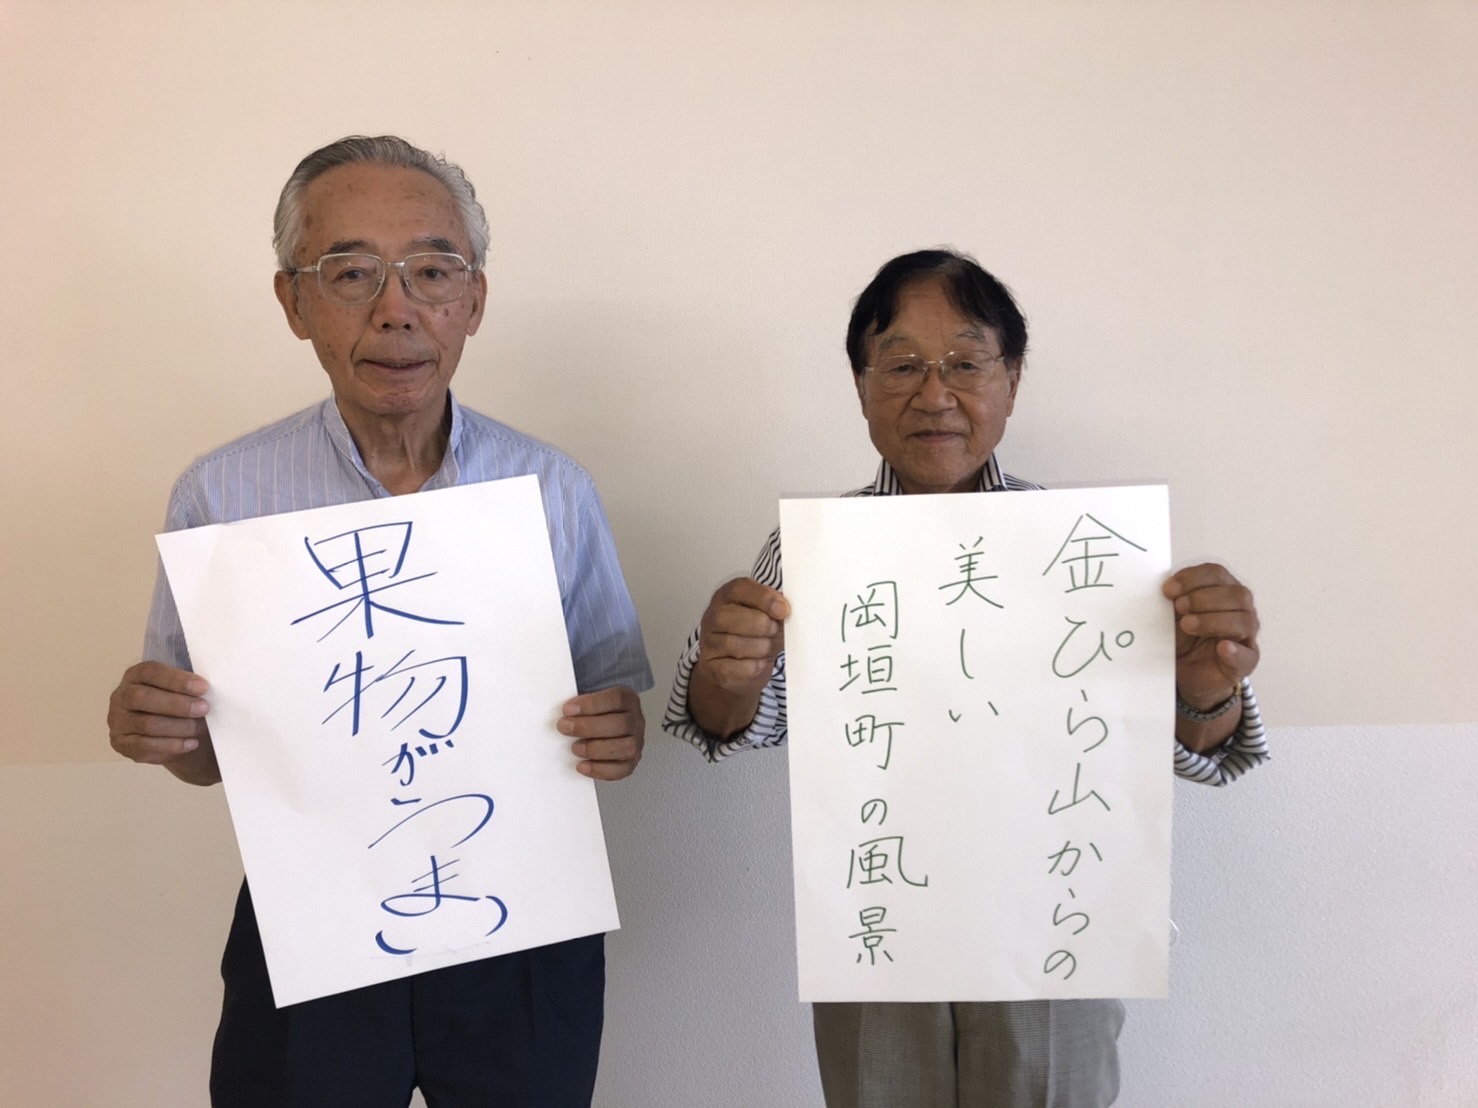 果物がうまい
金ぴら山からの
美しい
岡垣町の風景